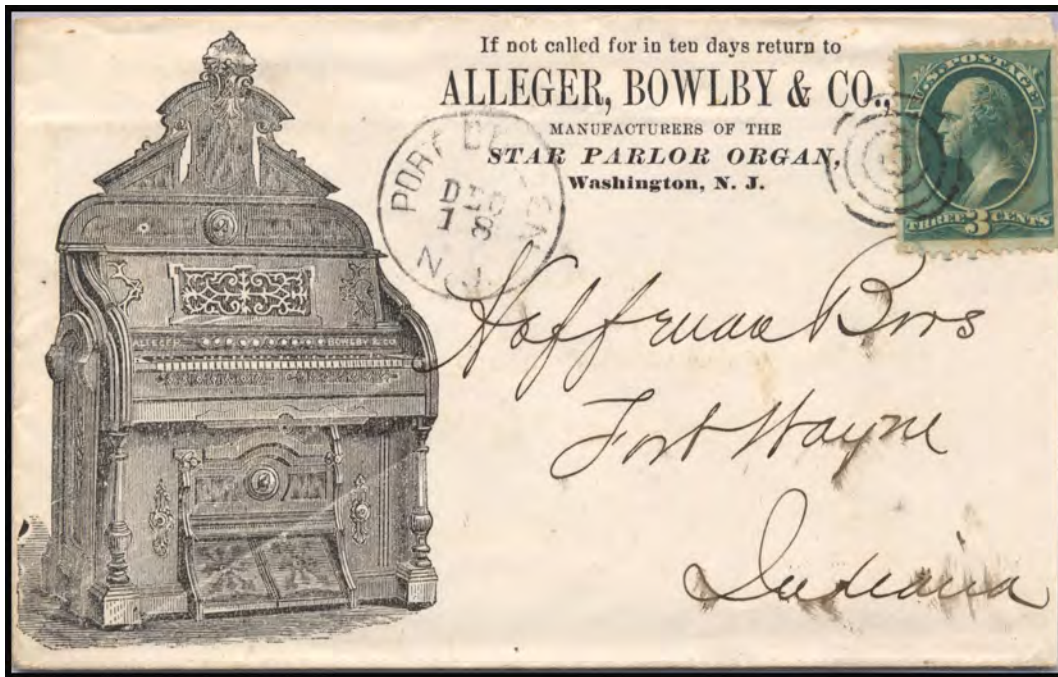 If not called for in ten days return to
ALLEGER, BOWLBY & CO.,
MANUFACTURERS OF THE
STAR PARLOR ORGAN,
Washington, N. J.
U.S. POSTAGE
THREE 3 CENTS
PORT
DEC
18
N.J.
ALLEGER BOWLBY & CO
Hoffman Bros
Fort Wayne
Indiana